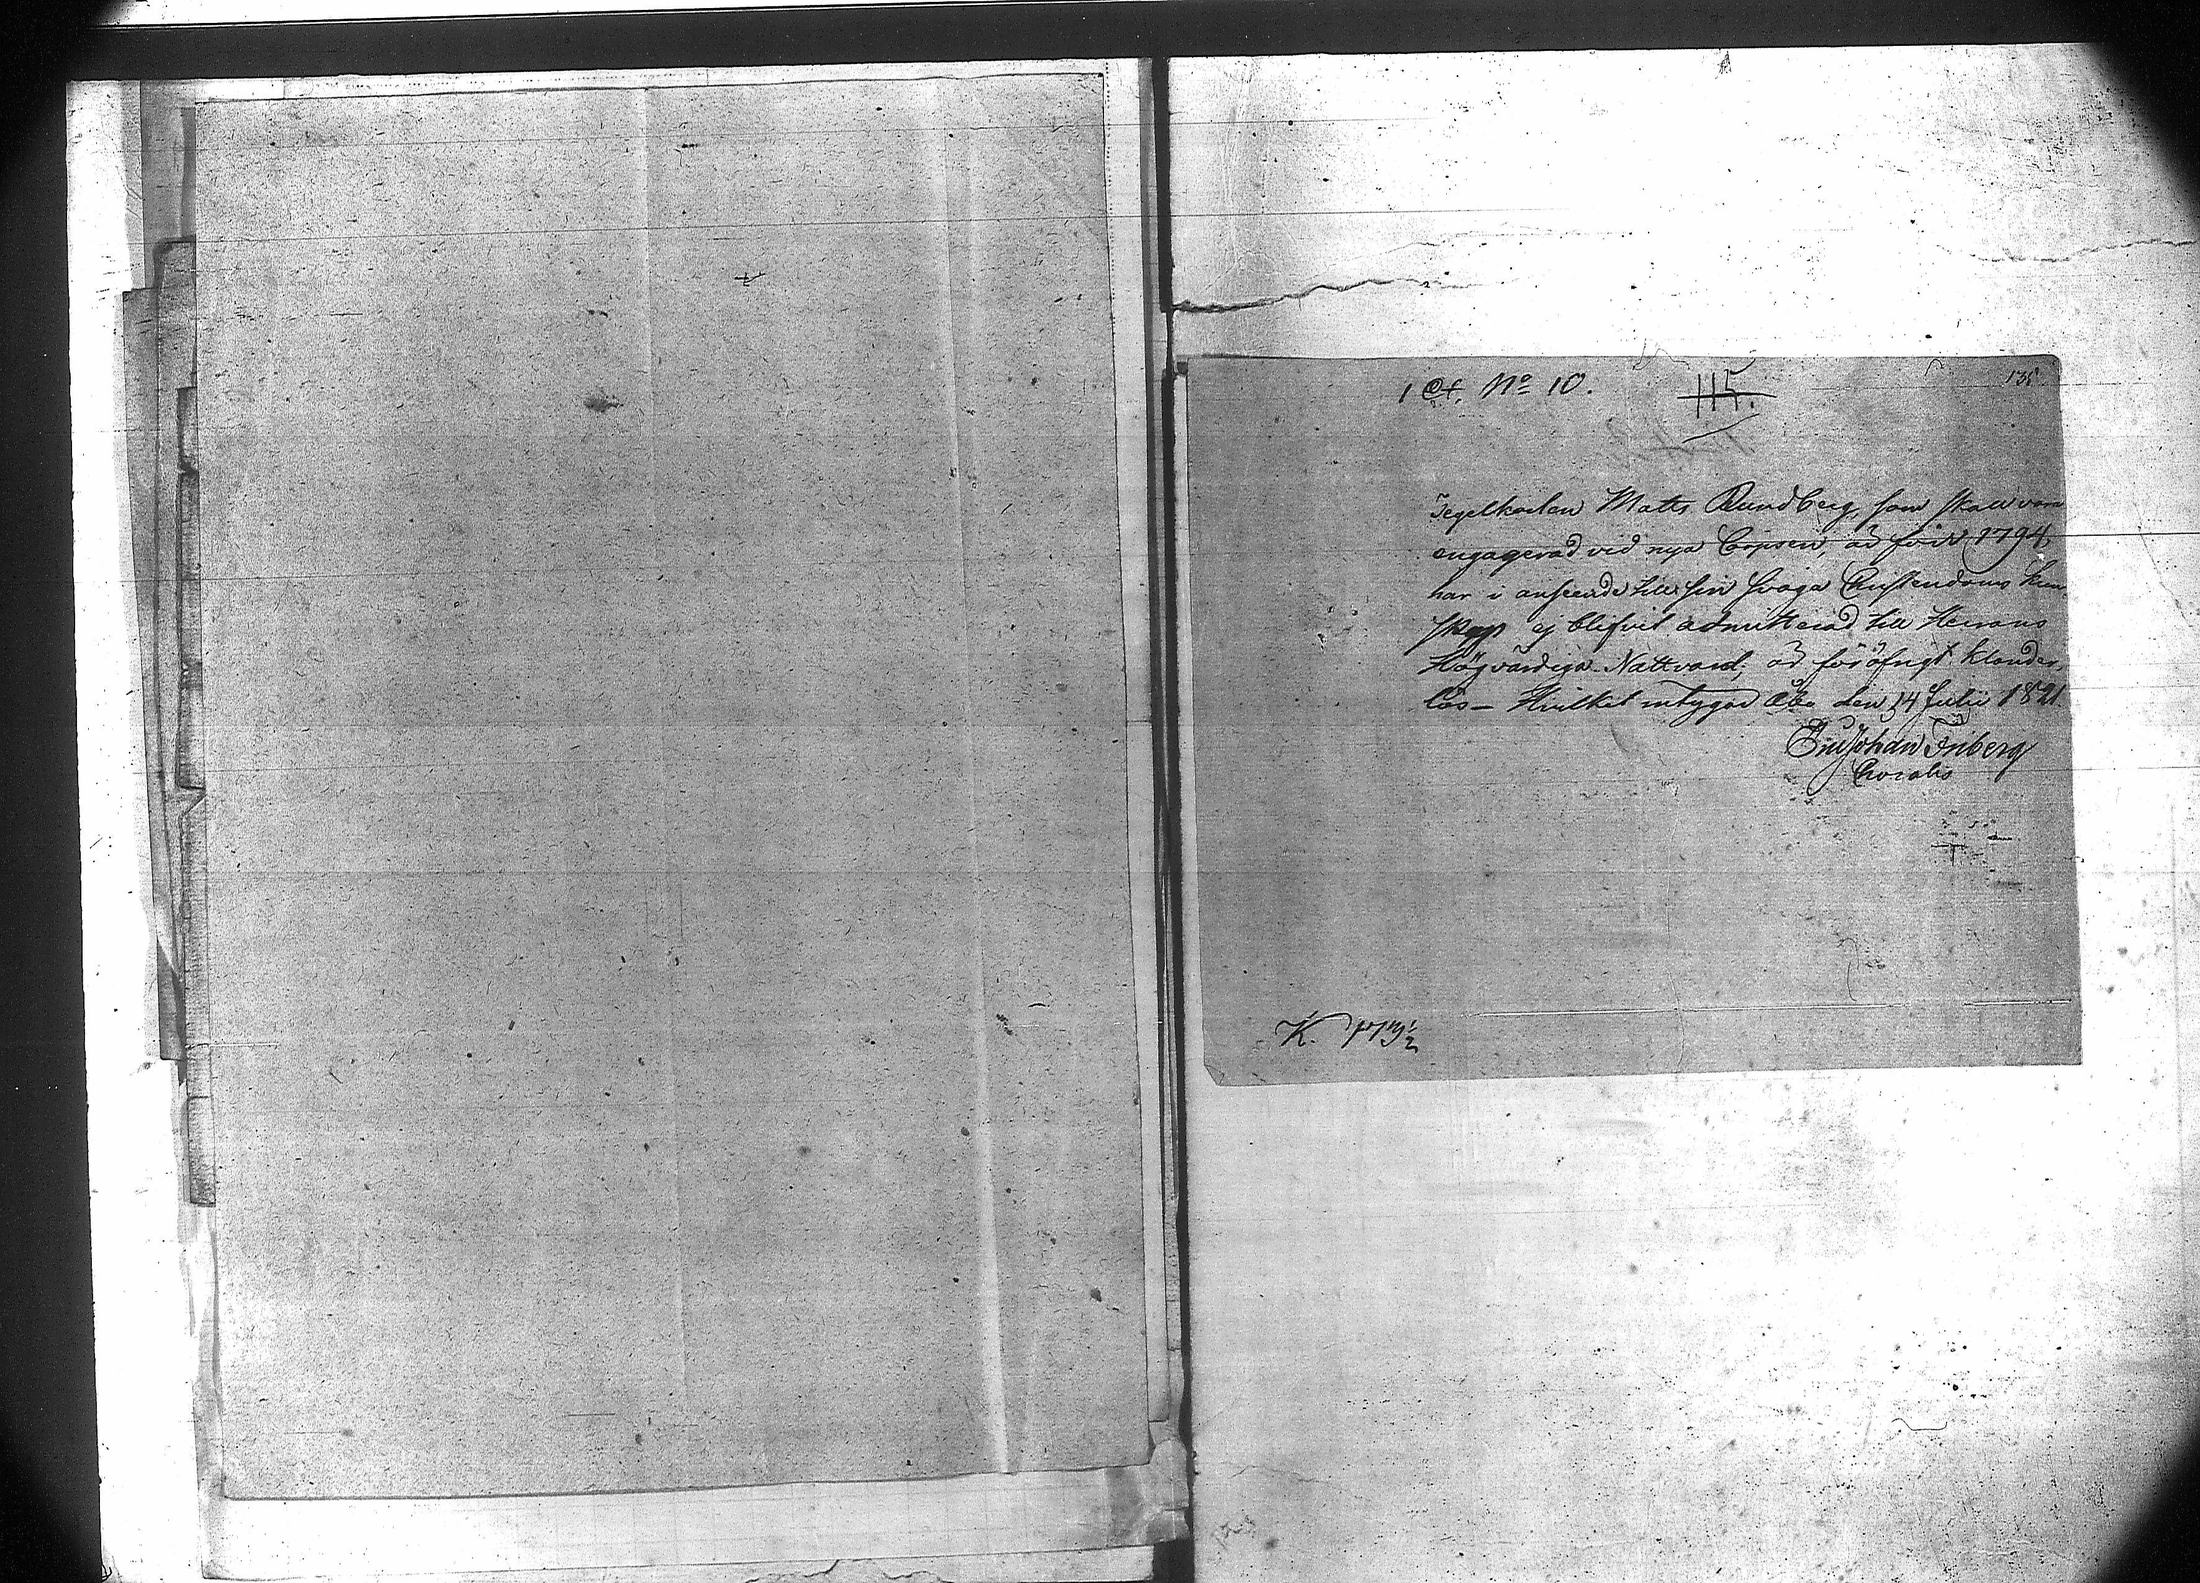 1 Ct. No 10.
115.
135.
Tegelkarlen Matts Rundberg, som skall vara
engagerad vid nya Corpsen, är född 1794,
har i anseende till sin svaga Christendoms kun-
skap ej blifvit admitterad till Herrans
Högvärdiga Nattvard; är föröfrigt klander-
lös – Hvilket intygar Åbo den 14 Julii 1821.
Johan Friberg
K. 173 1/2